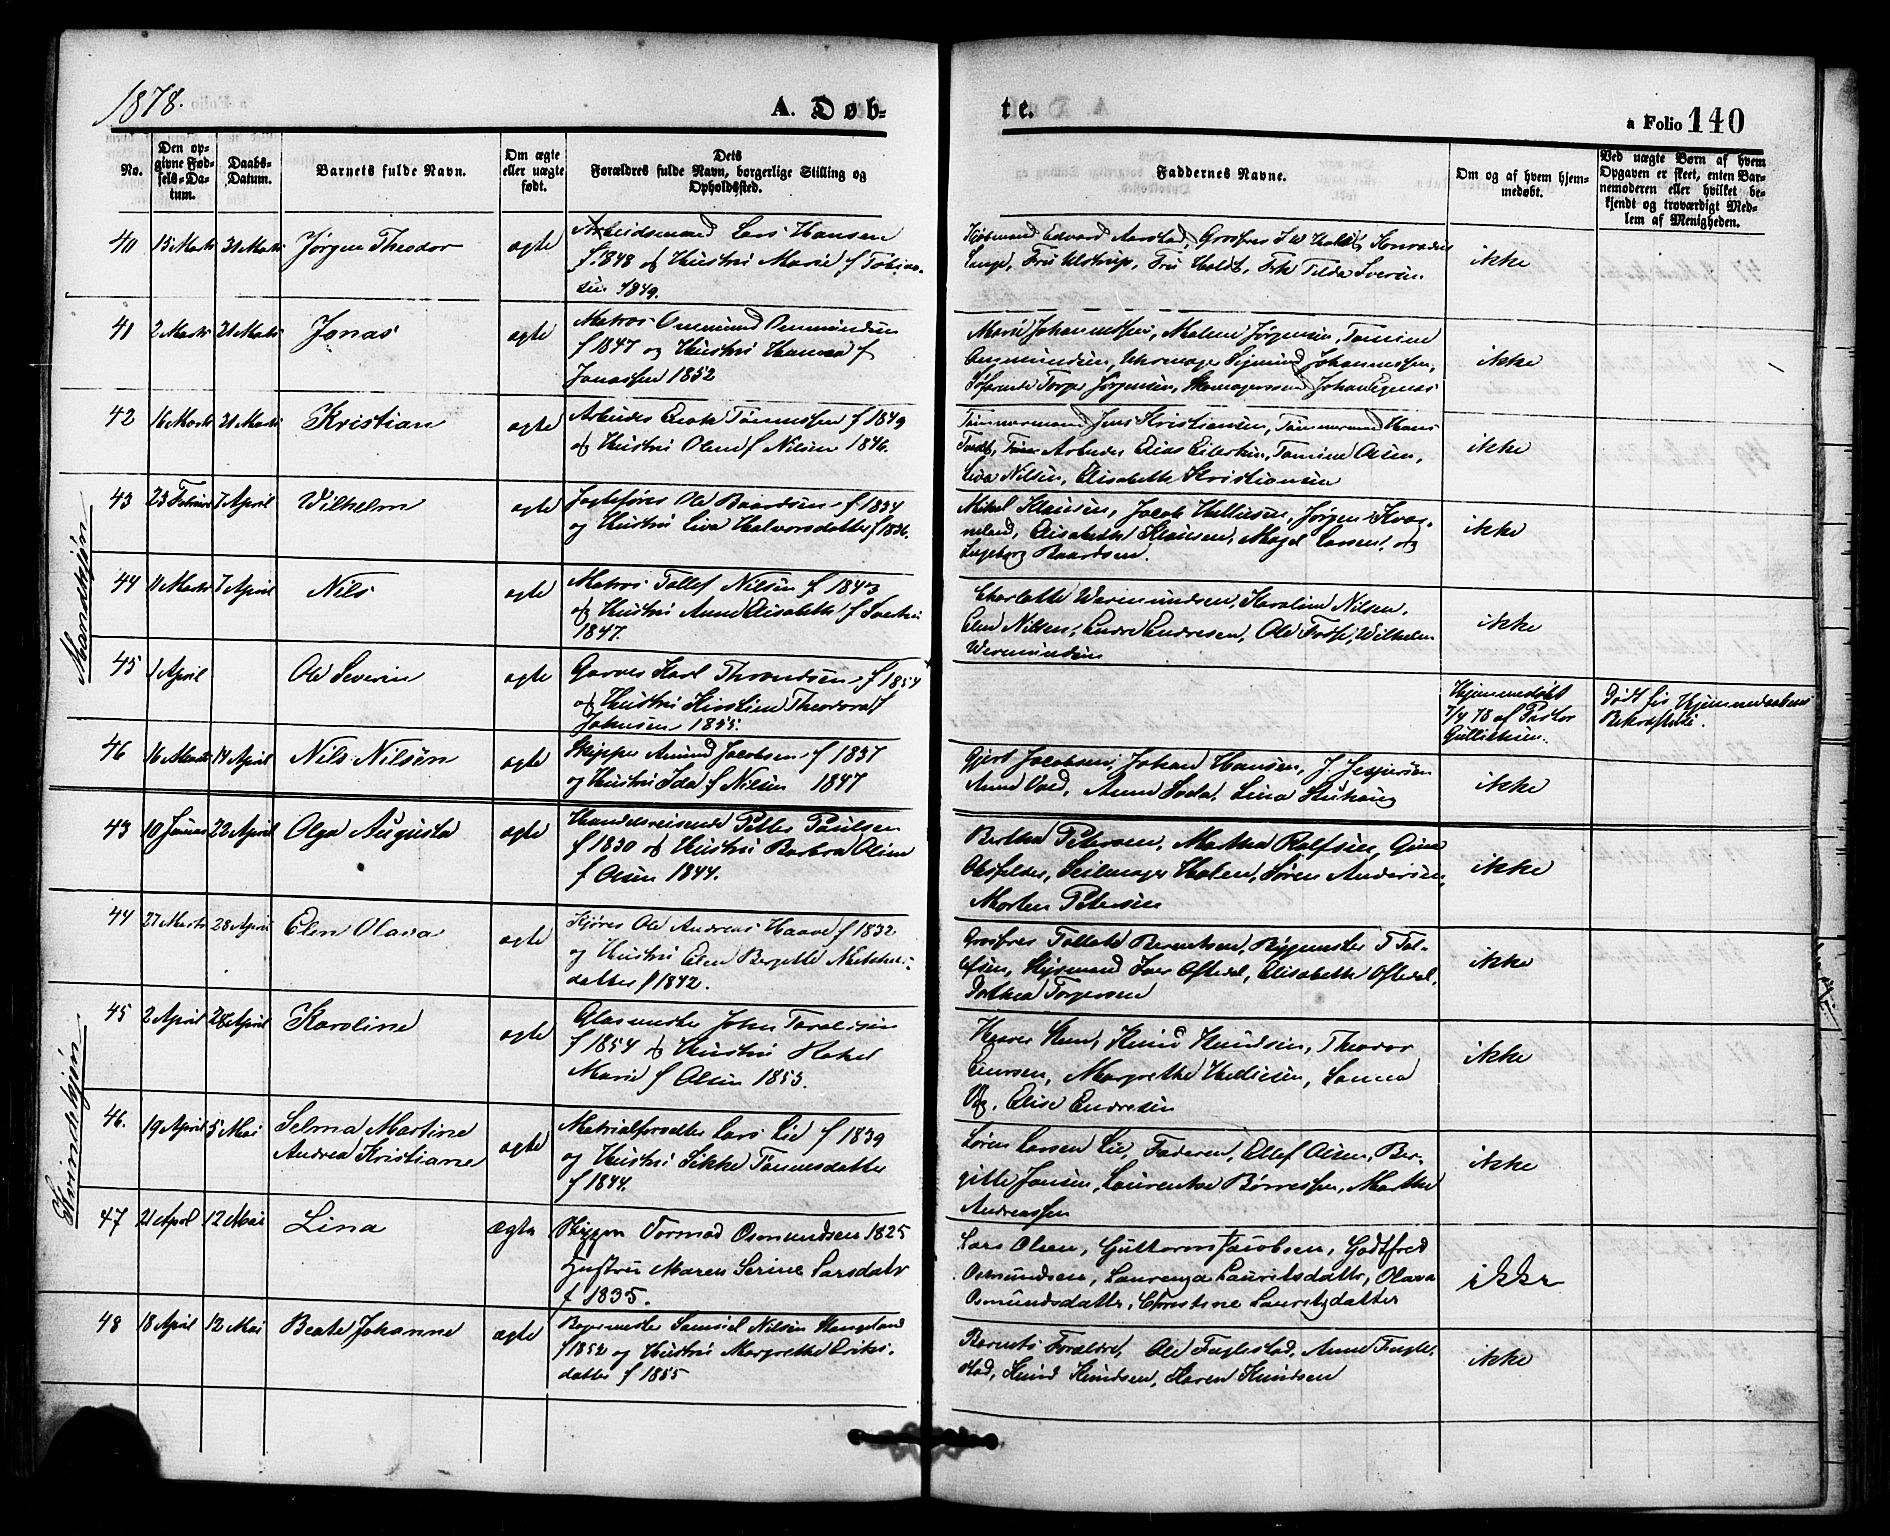 1878.
A. Døb-
te.
a Folio 140
No.
Den op-
givne Fød-
sels-Da-
tum.
Daabs-
Datum.
Barnets fulde Navn.
Om ægte
eller uægte
født.
Dets
Forældres fulde Navn, borgerlige Stilling og
Opholdssted.
Faddernes Navne.
Om og af hvem hjem-
medøbt.
Ved uægte Børn af hvem
Opgaven er skeet, enten Bar-
nemoderen eller hvilket be-
kjendt og troværdigt Med-
lem af Menigheden.
Mandkjøn
40 15 Marts 31 Marts Jørgen Theodor ægte Arbeidsmand Lars Hansen
f. 1848 og Hustru Marie f Tobias-
sen 1849.
Kjøbmand Edvard Aarstad, Grosfrer I W Holdt, Konradus
Lange, Fru Ulstrup, Fru Holdt, Frk Tilda Sversen
ikke
41 2 Marts 31 Marts Jonas ægte Matros Ommund Ommundsen
f 1847 og Hustru Hanna f
Jonassen 1852
Marie Johannessen, Malene Jørgensen, Tomine
Ommundsen, Sigmund Johannessen,
Torger Jørgensen, Johan Egenes
ikke
42 16 Marts 31 Marts Kristian ægte Arbeider Enok Tønnessen f 1849
og Hustru Olene f Nilsen 1846.
Tømmermand Jens Kristiansen, Tømmermand Hans
Tvedt, Arbeider Elias Eilertsen, Tomine Olsen,
Lisa Nilsen, Elisabeth Kristiansen
ikke
43 23 Februar 7 April Wilhelm ægte Jagtefører Ole Baardsen f 1834
og Hustru Lisa Halvorsdatter f 1836.
Mikal Klausen, Jacob Helliesen, Jørgen Kvag-
neland, Elisabeth Klausen, Magel Larsen, og
Ingeborg Baardsen.
ikke
44 11 Marts 7 April Nils ægte Matros Tollef Nilsen f 1843
og Hustru Anne Elisabeth f Svertsen
1847.
Charlotte Wermundsen, Karoline Nilsen,
Elen Nilsen, Endre Endresen, Ole Fodse, Wilhelm
Wermundsen
ikke
45 1 April Ole Severin ægte Garver Karl Throndsen f 1854
og Hustru Kirstine Theodora f
Johnsen 1855.
Hjemmedøbt
7/4 78 af Pastor
Gulliksen.
Født før Hjemmedaabens
Bekræftelse.
46 16 Marts 14 April Nils Nilsen ægte Skipper Amund Jacobsen f 1837
og Hustru Ida f Nilsen 1847
Gjert Jacobsen, Johan Hansen, J. Jespersen
Anne Vold, Anne Soda, Lina Stuhaug
ikke
Kvindekjøn
43 10 Januar 22 April Olga Augusta ægte Handelsreisende Petter Paulsen
f 1830 og Hustru Barbra Oline
f Olsen 1844.
Bertha Petersen, Martha Rolfsen, Gina
Olsfelder, Seilmager Halen, Søren Andersen,
Morten Petersen
ikke
44 27 Marts 28 April Elen Olava ægte Kjører Ole Andreas Haave f 1832
og Hustru Elen Bergitte Mikkels-
datter f 1842.
Grosfrer Tollak Berentsen, Bygmester T Tol-
lefsen, Styrmand Iver Oftedal, Elisabeth Oftedal,
Dorthea Torgersen
ikke
45 2 April 28 April Karoline ægte Glasmester John Taraldsen
f 1854 og Hustru Rakel
Marie f Olsen 1853.
Knud Knudsen, Theodor
Einersen, Margrethe Helliesen, Sanna
Elise Endresen
ikke
46. 19 April 5 Mai Selma Martine
Andrea Kristiane
ægte Matrialforvalter Lars Lie f 1839
og Hustru Sikke Tønnesdatter
f 1844.
Søren Larsen Lie, Faderen, Ellef Olsen, Ber-
gitte Jansen, Laurentse Børresen, Martha
Andreassen
ikke
47 21 April 12 Mai Lina ægte Skipper Tormod Osmundsen 1825
Hustru Maren Serine Larsdatr
f 1835.
Lars Olsen, Guttorm Jacobsen, Godtfred
Osmundsen, Laurenza Lauritsdatter, Olava
Osmundsdatter, Christine Lauritzdatter
ikke
48 18 April 12 Mai Beate Johanne ægte Bøgermester Samuel Nilsen Haugland
f 1852 og Hustru Margrethe Eriks-
datter f 1855
Barnets Forældre, Ole Fuglestad, Anne Fugle-
stad, Knud Knudsen, Karen Knudsen
ikke